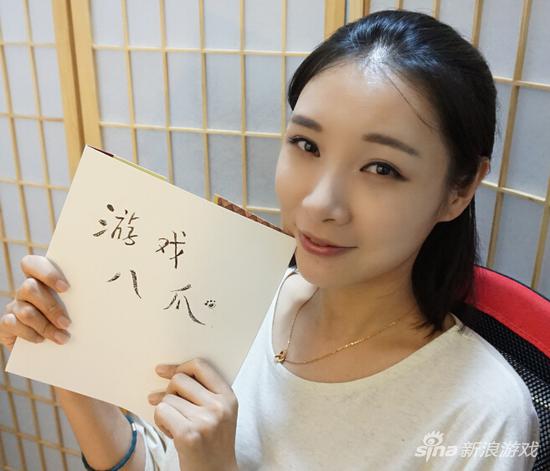 游戏
八爪
sina新浪游戏